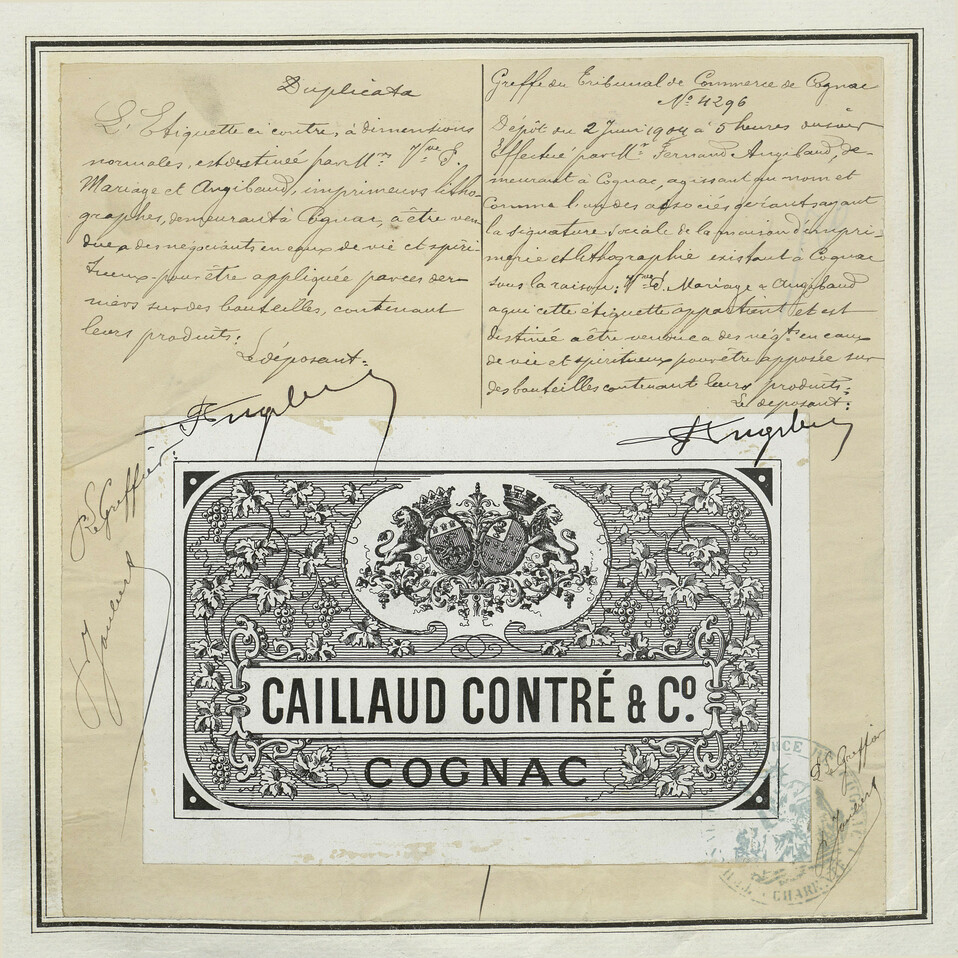 Duplicata
L'Etiquette ci contre, à dimensions
normales, est destinée par Mrs Vve P.
Mariage et Angibaud, imprimeurs litho-
graphes, demeurant à Cognac, à être ven-
due a des négociants en eaux de vie et spiri-
tueux pour être appliquée par ces der-
niers sur des bouteilles, contenant
leurs produits.
Le déposant:
Greffe du Tribunal de Commerce de Cognac
No 4296
Dépôt du 2 Juin 1904 à 5 heures du soir
Effectué par Mr Fernand Angibaud, de-
meurant à Cognac, agissant au nom et
Comme l'un des associés gérants ayant
la signature sociale de la maison d'impri-
merie et lithographie existant à Cognac
sous la raison: Vve P. Mariage & Angibaud
a qui cette étiquette appartient et est
destinée a être vendue a des négts en eaux
de vie et spiritueux pour être apposée sur
des bouteilles contenant leurs produits.
Le déposant:
Le Greffier:
CAILLAUD CONTRÉ & Co.
COGNAC
Le Greffier
CHARENTE